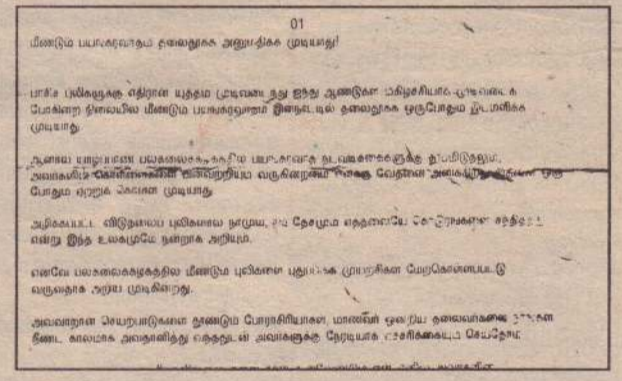 01
மீண்டும் பயங்கரவாதம் தலைதூக்க அனுமதிக்க முடியாது!
பாசிச புலிகளுக்கு எதிரான யுத்தம் முடிவடைந்து ஐந்து ஆண்டுகள் மகிழ்ச்சியாக முடிவடைக்
போகின்ற நிலையில் மீண்டும் பயங்கரவாதம் இந்நாட்டில் தலைதூக்க ஒருபோதும் இடமளிக்க
முடியாது
பல்கலைக்கழகத்தில் பயங்கரவாத நடவடிக்கைகளுக்கு
அவர்களின் கொள்கைகளை பின்பற்றியும் வருகின்றனர் வேதனை ஒரு
போதும் ஏற்றுக் கொள்ள முடியாது
அழிக்கப்பட்ட விடுதலைப் புலிகளால் நாமும், தேசமும் எத்தனையோ கொடூரங்களை சந்தித்தது
என்று இந்த உலகமுமே நன்றாக அறியும்.
எனவே பல்கலைக்கழகத்தில் மீண்டும் புலிகளை புதுப்பிக்க முயற்சிகள் மேற்கொள்ளப்பட்டு
வருவதாக அறிய முடிகிறது.
அவ்வாறான செயற்பாடுகளை தூண்டும் போராசிரியர்கள், மாணவர் ஒன்றிய தலைவர்களை நாங்கள்
நீண்ட காலமாக அவதானித்து வந்ததுடன் அவர்களுக்கு நேரடியாக எச்சரிக்கையும் செய்தோம்